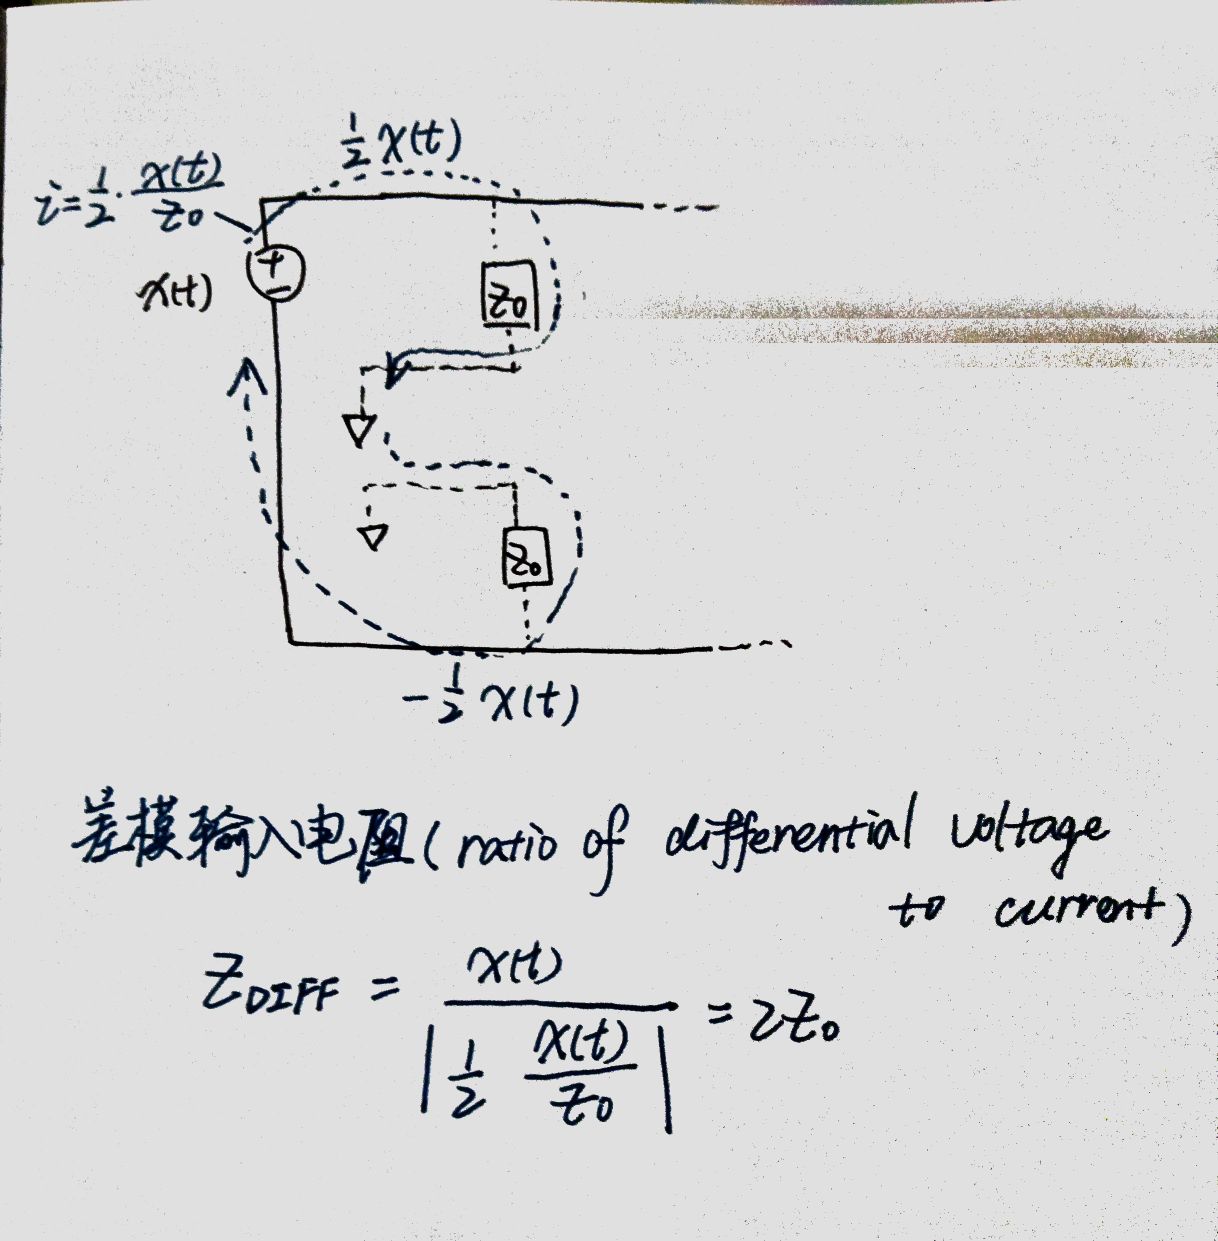 ½ x(t)
i = ½ · x(t)/Z₀
+
x(t)
−
Z₀
Z₀
−½ x(t)
差模输入电阻 ( ratio of differential voltage
to current )
Z_DIFF = x(t) / |½ x(t)/Z₀| = 2Z₀